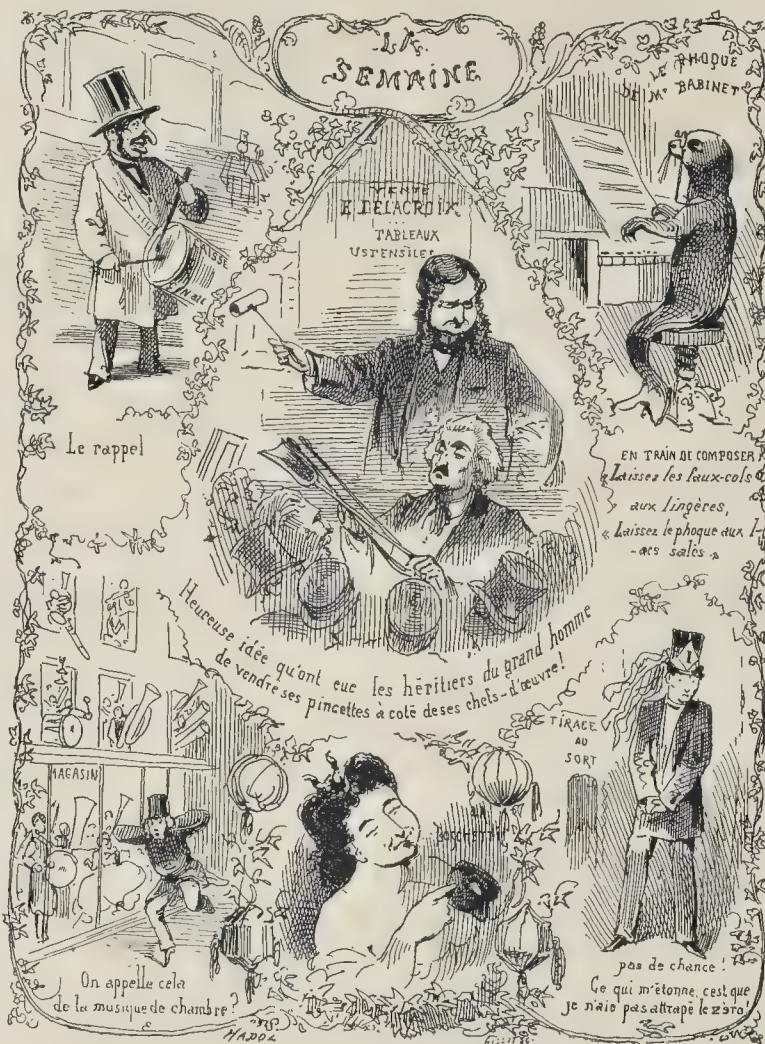 LA
SEMAINE
LE PHOQUE
DE Mr BABINET
VENTE
E. DELACROIX
TABLEAUX
USTENSILES
Le rappel
EN TRAIN DE COMPOSER
Laissez les faux-cols
aux lingères,
« Laissez le phoque aux
-acs salés »
Heureuse idée qu'ont eue les héritiers du grand homme
de vendre ses pincettes à coté de ses chefs-d'œuvre!
MAGASIN
On appelle cela
de la musique de chambre!
LA
TIRAGE
AU
SORT
pas de chance!
Ce qui m'étonne, c'est que
je n'aie pas attrapé le zéro!
HADOL